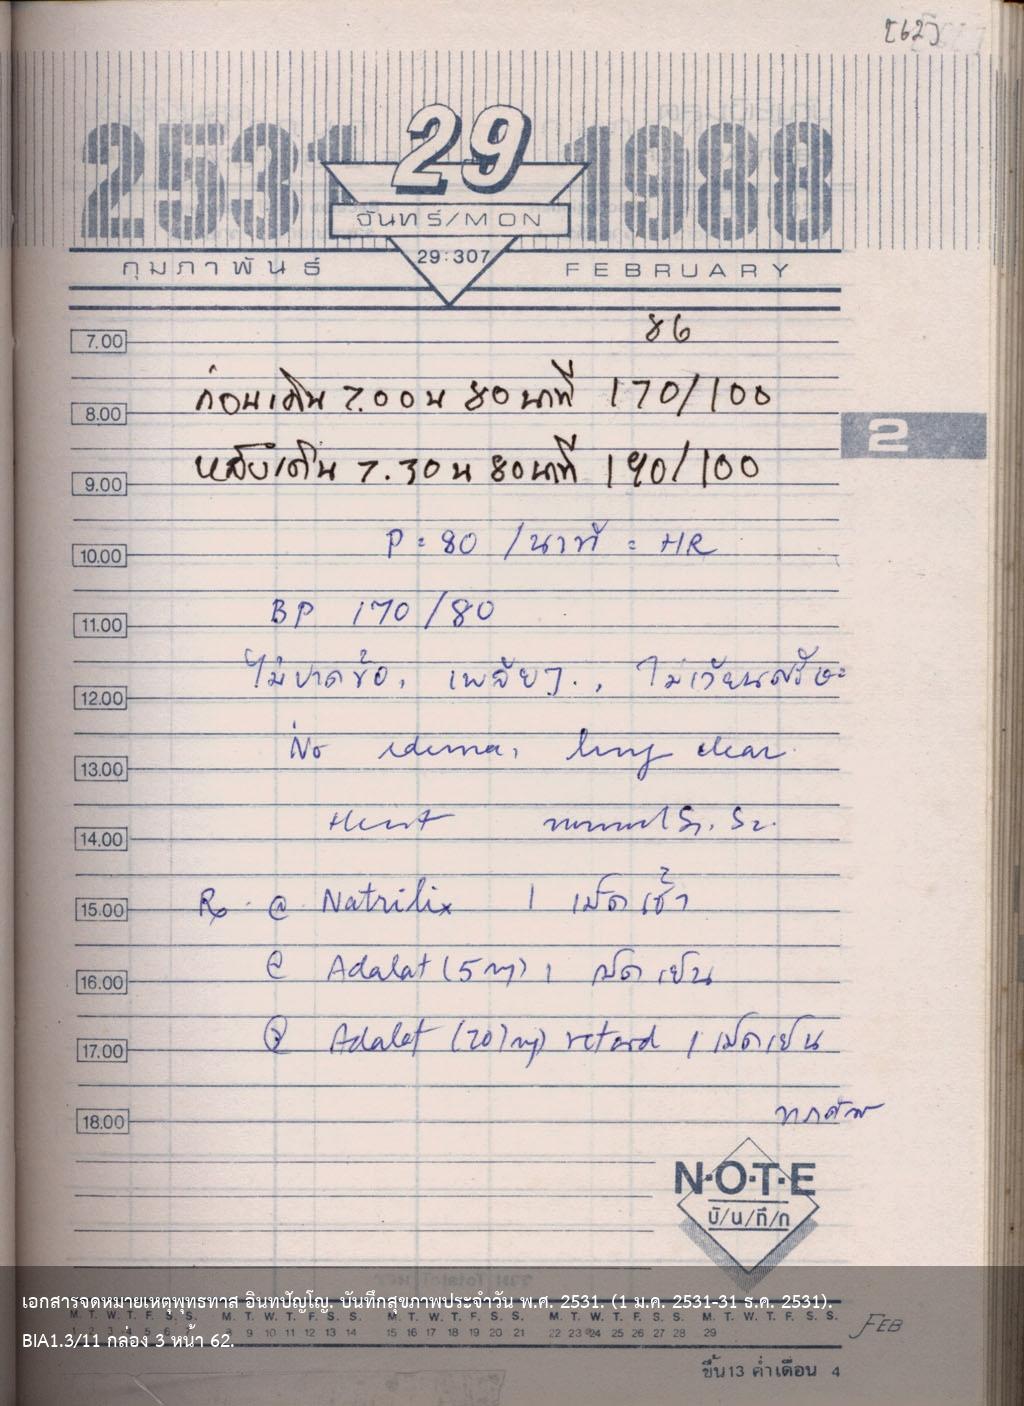 [62]
2531 29 1988
จันทร์/MON
29:307
กุมภาพันธ์ FEBRUARY
7.00 86
8.00 ก่อนเดิน 7.00 น 80 นาที 170/100
2
9.00 หลังเดิน 7.30 น 80 นาที 190/100
10.00 P = 80 /นาที = HR
11.00 BP 170/80
12.00 ไม่ปวดข้อ, เพลียๆ., ไม่เวียนศรีษะ
13.00 No edema, lung clear
14.00 Heart normal S1, S2.
15.00 Rx @ Natrilix 1 เม็ดเช้า
16.00 @ Adalat (5 mg) 1 เม็ด เย็น
17.00 @ Adalat (20) mg) retard 1 เม็ดเย็น
18.00
N·O·T·E
บั/น/ทึ/ก
เอกสารจดหมายเหตุพุทธทาส อินทปัญโญ. บันทึกสุขภาพประจำวัน พ.ศ. 2531. (1 ม.ค. 2531-31 ธ.ค. 2531).
M. T. W. T. F. S. S. M. T. W. T. F. S. S. M. T. W. T. F. S. S. M. T. W. T. F. S. S. M. T. W. T. F. S. S.
1 2 3 4 5 6 7 8 9 10 11 12 13 14 15 16 17 18 19 20 21 22 23 24 25 26 27 28 29 FEB
BIA1.3/11 กล่อง 3 หน้า 62.
ขึ้น 13 ค่ำเดือน 4